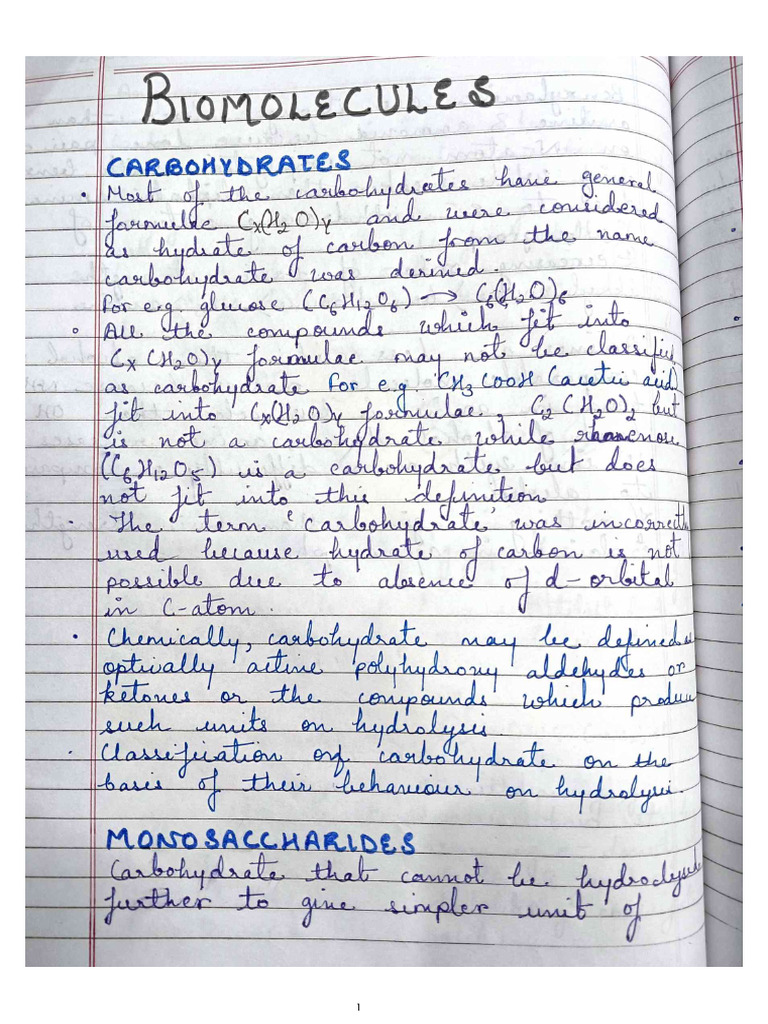 BIOMOLECULES
CARBOHYDRATES
• Most of the carbohydrates have general
formulae Cx(H2O)y and were considered
as hydrate of carbon from the name
carbohydrate was derived.
For e.g. glucose (C6H12O6) → C6(H2O)6
• All the compounds which fit into
Cx(H2O)y formulae may not be classified
as carbohydrate for e.g. CH3COOH (acetic acid)
fit into Cx(H2O)y formulae, C2(H2O)2 but
is not a carbohydrate while
(C6H12O5) is a carbohydrate but does
not fit into this definition
• The term 'carbohydrate' was incorrectly
used because hydrate of carbon is not
possible due to absence of d-orbital
in C-atom.
• Chemically, carbohydrate may be defined as
optically active polyhydroxy aldehydes or
ketones or the compounds which produce
such units on hydrolysis.
• Classification of carbohydrate on the
basis of their behaviour on hydrolysis.
MONOSACCHARIDES
Carbohydrate that cannot be
further to give simpler unit of
1